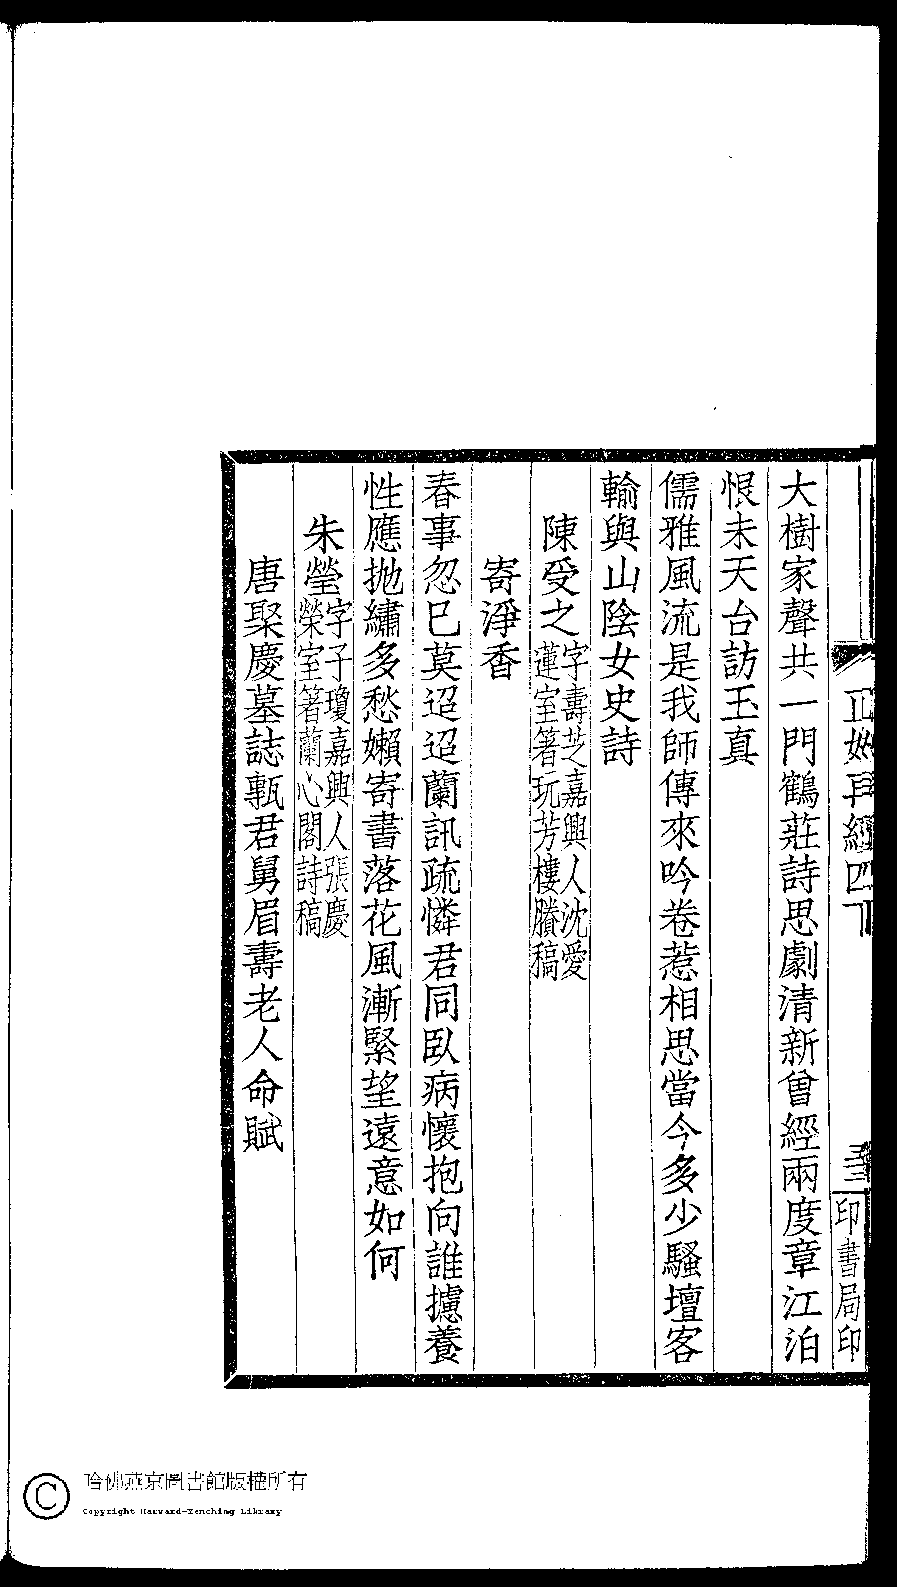 大樹家聲共一門鶴莊詩思劇清新曾經兩度章江泊
恨未天台訪玉真
儒雅風流是我師傳來吟卷惹相思當今多少騷壇客
輸與山陰女史詩
陳受之字壽芝嘉興人沈愛
蓮室箸玩芳樓賸稿
寄淨香
春事忽巳莫迢迢蘭訊疏憐君同臥病懷抱向誰攄養
性應拋繡多愁嬾寄書落花風漸緊望遠意如何
朱瑩字子瓊嘉興人張慶
榮室箸蘭心閣詩稿
唐聚慶墓誌甎君舅眉壽老人命賦
正始再續四下
印書局印
哈佛燕京圖書館版權所有
Copyright Harvard-Yenching Library